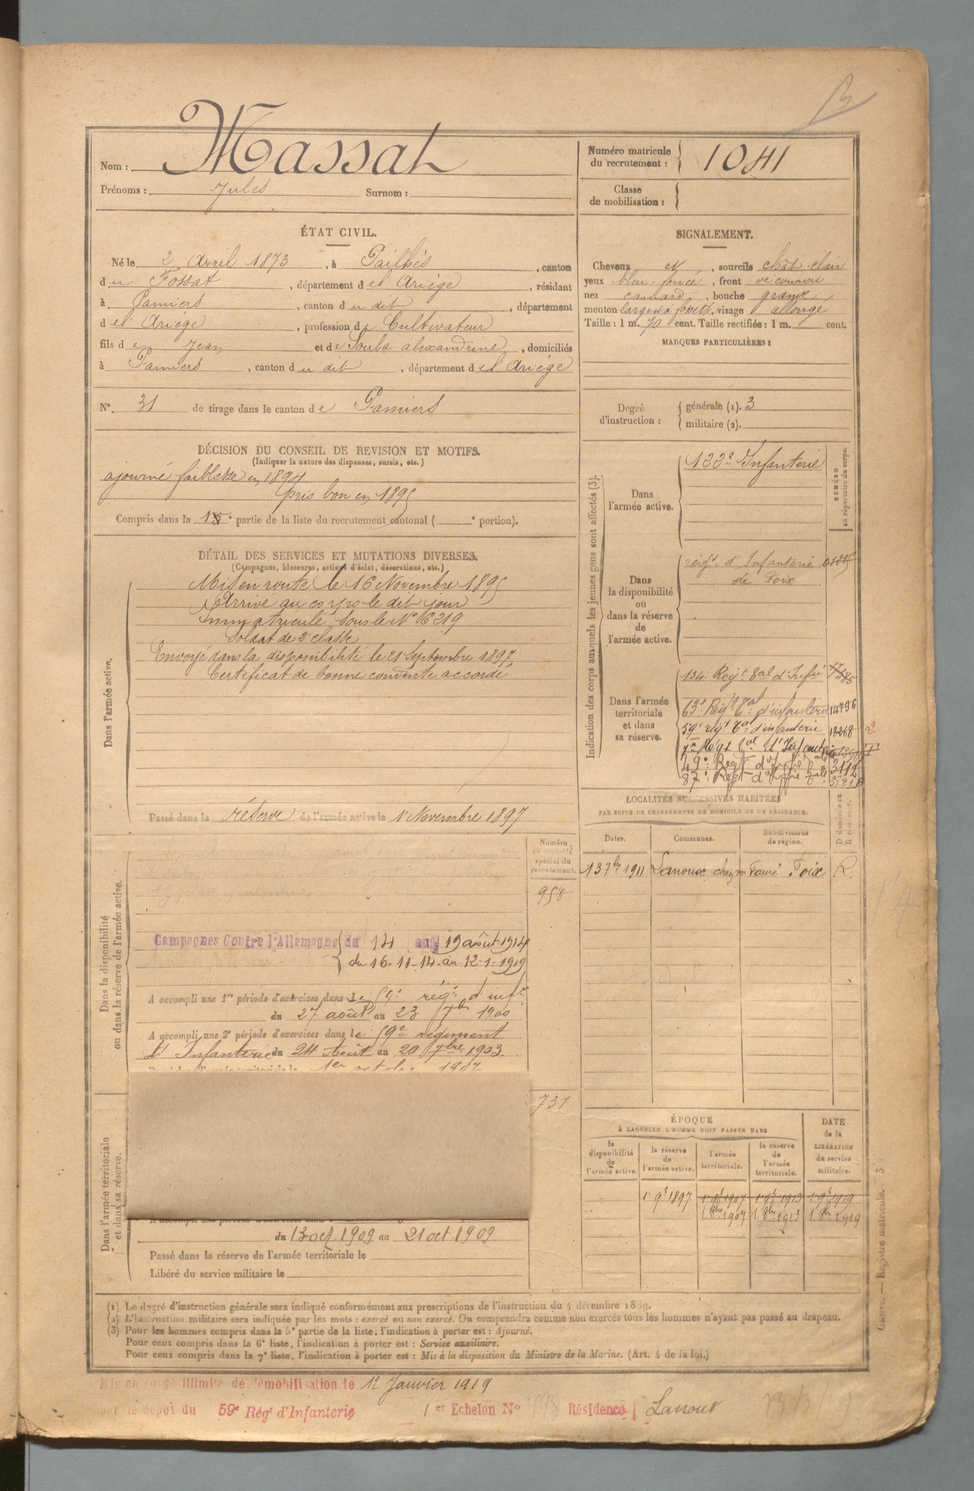 Nom : Massat
Prénoms : Jules Surnom :
Numéro matricule du recrutement : 1041
Classe de mobilisation :
ÉTAT CIVIL.
Né le 2 Avril 1873, à Pailhès, canton
du Fossat, département de l'Ariège, résidant
à Pamiers, canton du dit, département
de l'Ariège, profession de Cultivateur
fils de Jean et de Soula alexandrine, domiciliés
à Pamiers, canton du dit, département de l'Ariège
N° 31 de tirage dans le canton de Pamiers
SIGNALEMENT.
Cheveux et, sourcils chât-clair
yeux bleu-foncé, front découvert
nez camard, bouche grande
menton large à fossette, visage allongé
Taille : 1 m. 70 cent. Taille rectifiée : 1 m. cent.
MARQUES PARTICULIÈRES :
Degré d'instruction : générale (1). 3
militaire (2).
DÉCISION DU CONSEIL DE REVISION ET MOTIFS.
(Indiquer la nature des dispenses, sursis, etc.)
ajourné faiblesse en 1894
pris bon en 1895
Compris dans la partie de la liste du recrutement cantonal ( e portion).
DÉTAIL DES SERVICES ET MUTATIONS DIVERSES.
(Campagnes, blessures, actions d'éclat, décorations, etc.)
Dans l'armée active.
Mis en route le 16 Novembre 1895
Arrivé au corps le dit jour
Immatriculé sous le N° 16219
Soldat de 2e classe
Envoyé dans la disponibilité le 21 Septembre 1897
Certificat de bonne conduite accordé
Passé dans la réserve de l'armée active le 1 Novembre 1897
Indication des corps auxquels les jeunes gens sont affectés (3).
NUMÉRO au répertoire du corps.
Dans l'armée active.
122e Infanterie
Dans la disponibilité ou dans la réserve de l'armée active.
régt d'Infanterie
de Foix
Dans l'armée territoriale et dans sa réserve.
134 Régt Tal d'Infie
63e Régt Tal d'infanterie 14796
59e régt Td d'infanterie 18268
49e Régt d'Infie
87e Régt d'Infie
LOCALITÉS SUCCESSIVES HABITÉES
PAR SUITE DE CHANGEMENTS DE DOMICILE OU DE RÉSIDENCE.
Dates. Communes. Subdivisions de région.
13 7bre 1911 Lanoux chez m Fauré Foix R.
Numéro spécial du recrutement.
958
Dans la disponibilité ou dans la réserve de l'armée active.
Campagnes Contre l'Allemagne du 14 au 19 août 1914
du 16-11-14 au 12-1-1919
A accompli une 1re période d'exercices dans le 59e régt d'infie
du 27 août au 23 7bre 1900
A accompli une 2e période d'exercices dans le 59e régiment
d'Infanterie du 24 Août au 20 7bre 1903
1er octobre 1907
731
Dans l'armée territoriale et dans sa réserve.
du 13 oct 1909 au 21 oct 1909
Passé dans la réserve de l'armée territoriale le
Libéré du service militaire le
ÉPOQUE
A LAQUELLE L'HOMME DOIT PASSER DANS
la disponibilité de l'armée active. la réserve de l'armée active. l'armée territoriale. la réserve de l'armée territoriale.
DATE de la LIBÉRATION du service militaire.
1 9e 1897 1 9e 1907 1 9e 1913 1 9e 1919
1 8bre 1907 1 8bre 1913 1 8bre 1919
(1) Le degré d'instruction générale sera indiqué conformément aux prescriptions de l'instruction du 4 décembre 1889.
(2) L'instruction militaire sera indiquée par les mots : exercé ou non exercé. On comprendra comme non exercés tous les hommes n'ayant pas passé au drapeau.
(3) Pour les hommes compris dans la 5e partie de la liste, l'indication à porter est : Ajourné.
Pour ceux compris dans la 6e liste, l'indication à porter est : Service auxiliaire.
Pour ceux compris dans la 7e liste, l'indication à porter est : Mis à la disposition du Ministre de la Marine. (Art. 4 de la loi.)
Registre matricule.
Mis en congé illimité de démobilisation le 12 Janvier 1919
par le dépôt du 59e Régt d'Infanterie 1er Echelon N° Résidence Lanoux